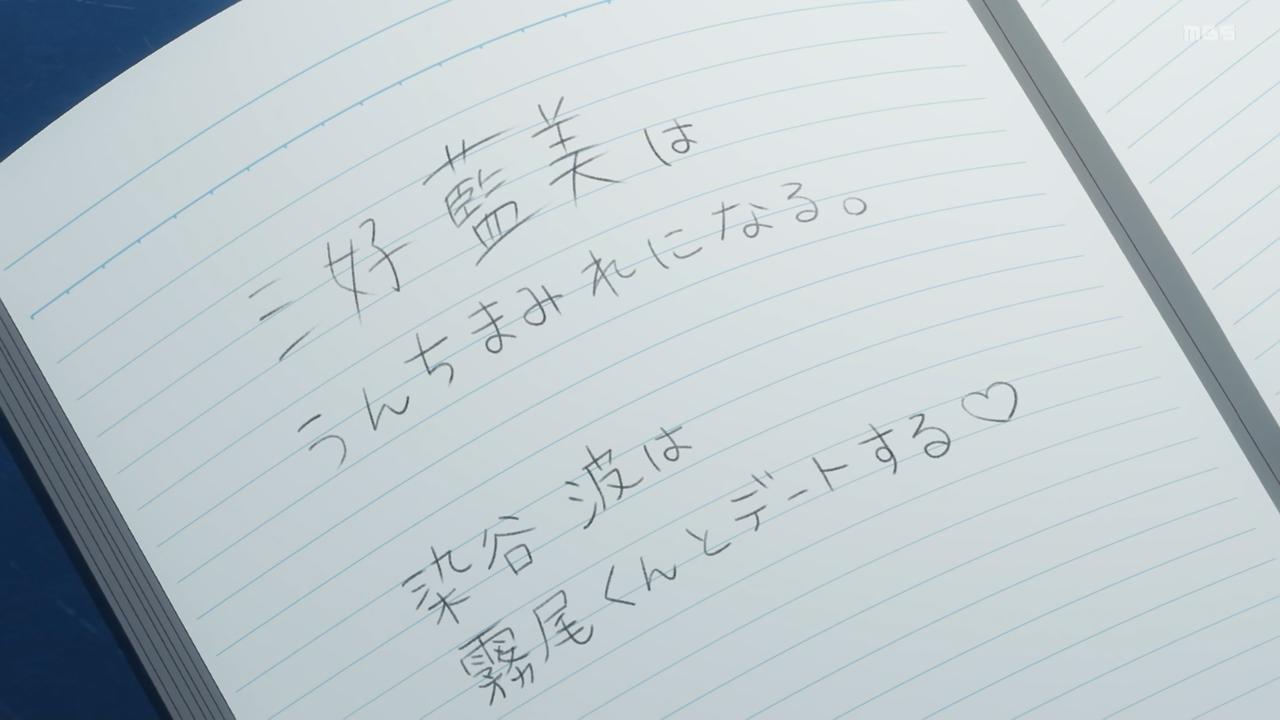 MBS
三好藍美は
うんちまみれになる。
染谷波は
霧尾くんとデートする♡